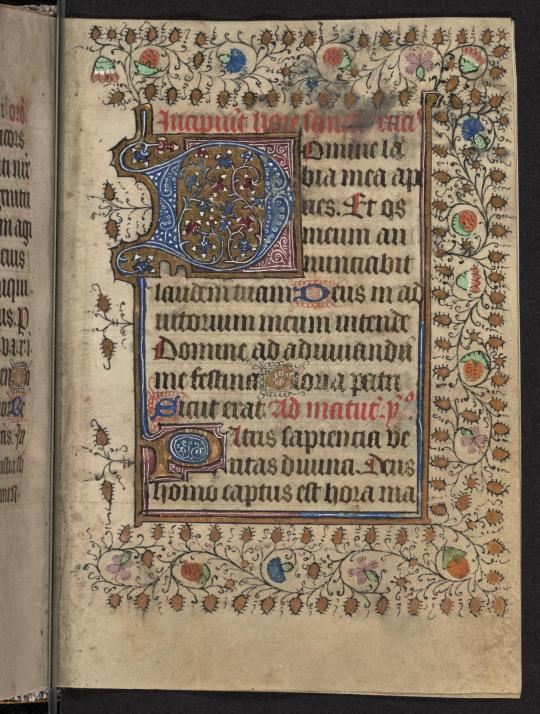 Incipiunt hore sancte cruci
Domine la
bia mea ap
ries. Et os
meum an
nunciabit
laudem tuam Deus in ad
iutorium meum intende
Domine ad adiuuandū
me festina Gloria patri
Sicut erat. Ad matut. ỹ
Patris sapiencia ve
ritas diuina. Deus
homo captus est hora ma